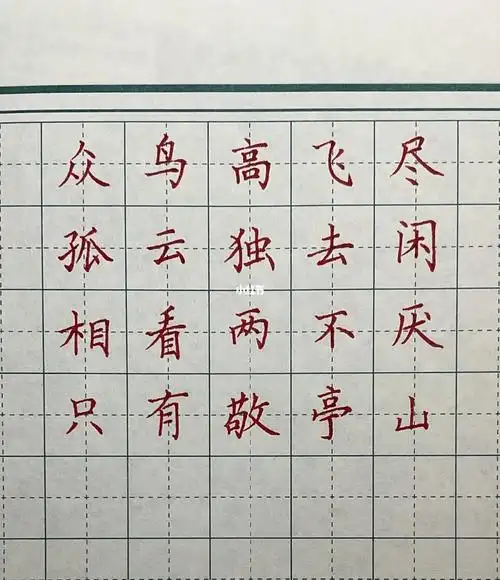 众鸟高飞尽
孤云独去闲
小红书
相看两不厌
只有敬亭山